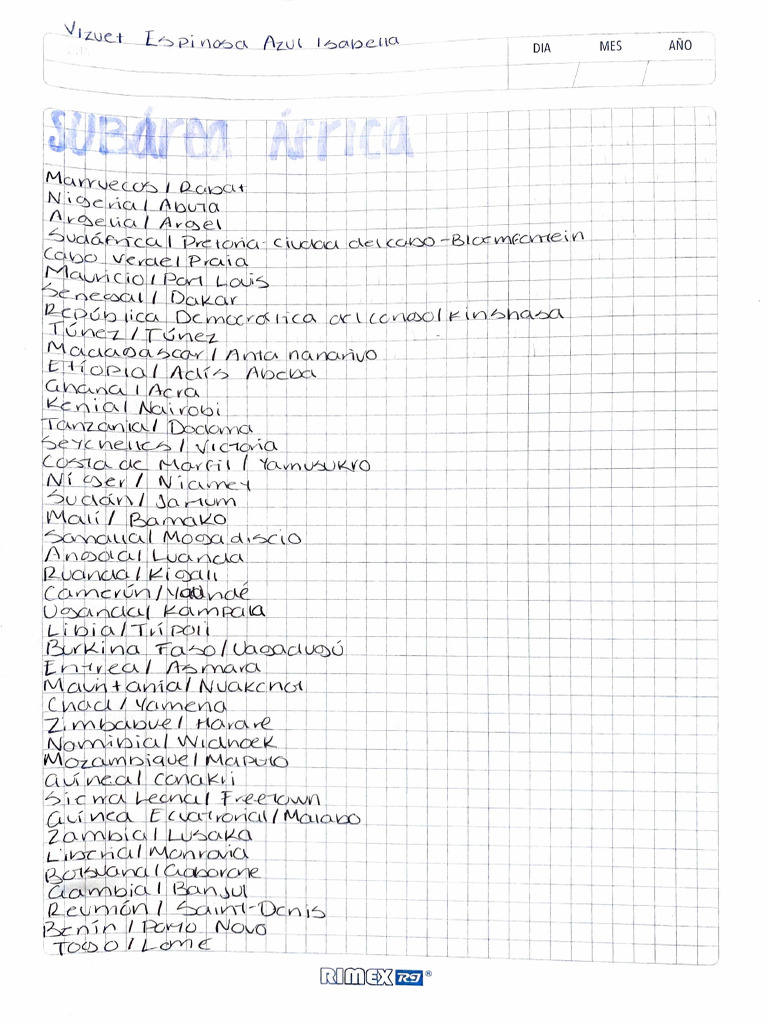 Vizuet Espinosa Azul Isabella
DIA MES AÑO
SUBárea África
Marruecos / Rabat
Nigeria / Abuja
Argelia / Argel
Sudáfrica / Pretoria - Ciudad del cabo - Bloemfontein
Cabo Verde / Praia
Mauricio / Port Louis
Senegal / Dakar
República Democrática del congo / Kinshasa
Túnez / Túnez
Madagascar / Anta nanarivo
Etiopia / Adís Abeba
Ghana / Acra
Kenia / Nairobi
Tanzania / Dodoma
Seychelles / Victoria
Costa de Marfil / Yamusukro
Níger / Niamey
Sudán / Jartum
Malí / Bamako
/ Mogadiscio
Angola / Luanda
Ruanda / Kigali
Camerún / Yaundé
Uganda / Kampala
Libia / Trípoli
Burkina Faso / Uagadugú
Entrea / Asmara
Mauritania / Nuakchot
Chad / Yamena
Zimbabue / Harare
Nomibia / Widhoek
Mozambique / Maputo
Guinea / Conakri
Sierra Leona / Freetown
Guinea Ecuatorial / Malabo
Zambia / Lusaka
Liberia / Monrovia
Botsuana / Gaborone
Gambia / Banjul
Reunión / Saint-Denis
Benín / Porto Novo
Togo / Lomé
RIMEX RJ®